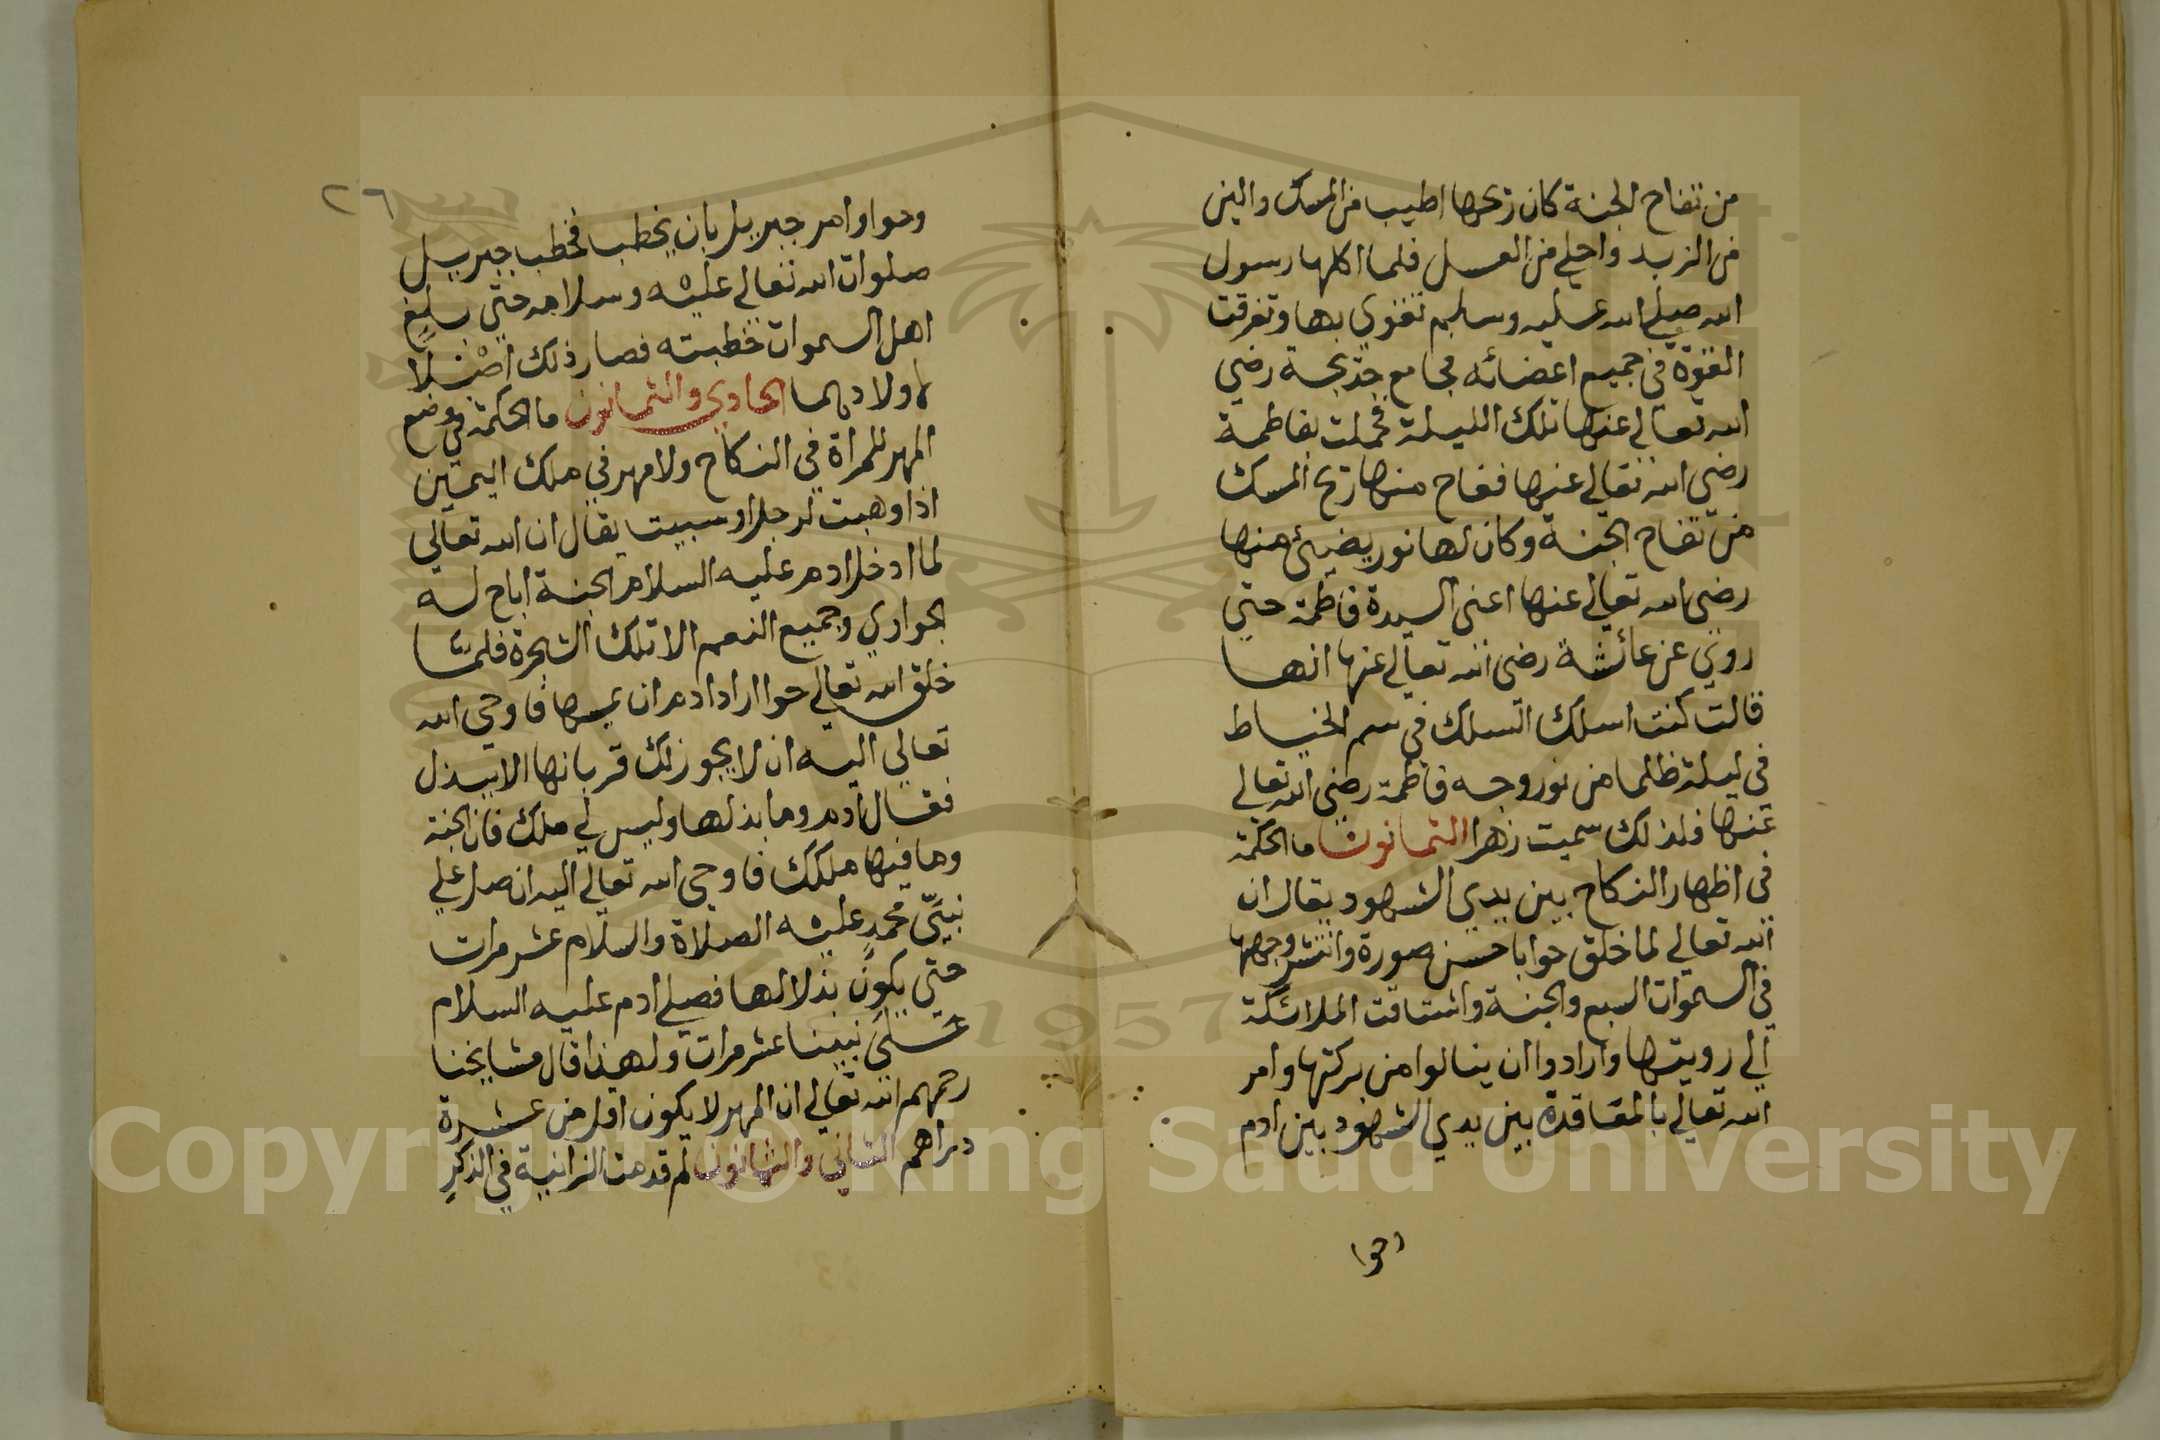 من تفاح الجنة كان ريحها اطيب من المسك والين
من الزبد واحلى من العسل فلما اكلها رسول
الله صلى الله عليه وسلم تقوي بها وتفرقت
القوة في جميع اعضائه فجامع خديجة رضي
الله تعالى عنها تلك الليلة فحملت بفاطمة
رضي الله تعالى عنها ففاح منها ريح المسك
من تفاح الجنة وكان لها نور يضيئ منها
رضي الله تعالى عنها اعنى السيدة فاطمة حتى
روي عن عائشة رضى الله تعالى عنها انها
قالت كنت اسلك السلك في سم الخياط
في ليلة ظلما من نور وجه فاطمة رضى الله تعالى
عنها فلذلك سميت زهرا الثمانون ما الحكمة
في اظهار النكاح بين يدي الشهود يقال ان
الله تعالى لما خلق حوا باحسن صورة وانتشر وجهها
في السموات السبع والجنة واشتاقت الملائكة
الى رويتها وارادوا ان ينالوا من بركتها وامر
الله تعالى بالمعاقدة بين يدي الشهود بين ادم
وحوا
٢٦
وحوا وامر جبريل بان يخطب فخطب جبريل
صلوات الله تعالى عليه وسلامه حتى بلغ
اهل السموات خطبته فصار ذلك اصلا
لاولادهما الحادي والثمانون ما الحكمة في وضع
المهر للمراة في النكاح ولا مهر في ملك اليمين
اذا وهبت لرجل او سبيت يقال ان الله تعالى
لما ادخل ادم عليه السلام الجنة اباح له
الجواري وجميع النعم الا تلك الشجرة فلما
خلق الله تعالى حوا اراد ادم ان يمسها فاوحى الله
تعالى اليه ان لا يجوز لك قربانها الا ببذل
فقال ادم وما بذلها وليس لي ملك فان الجنة
وما فيها ملكك فاوحى الله تعالى اليه ان صل على
نبيّي محمد عليه الصلاة والسلام عشر مرات
حتى يكون بذلا لها فصلى ادم عليه السلام
على نبينا عشر مرات ولهذا قال مشايخنا
رحمهم الله تعالى ان المهر لا يكون اقل من عشرة
دراهم الثاني والثمانون لم قدمت الزانية في الذكر
Copyright © King Saud University
1957